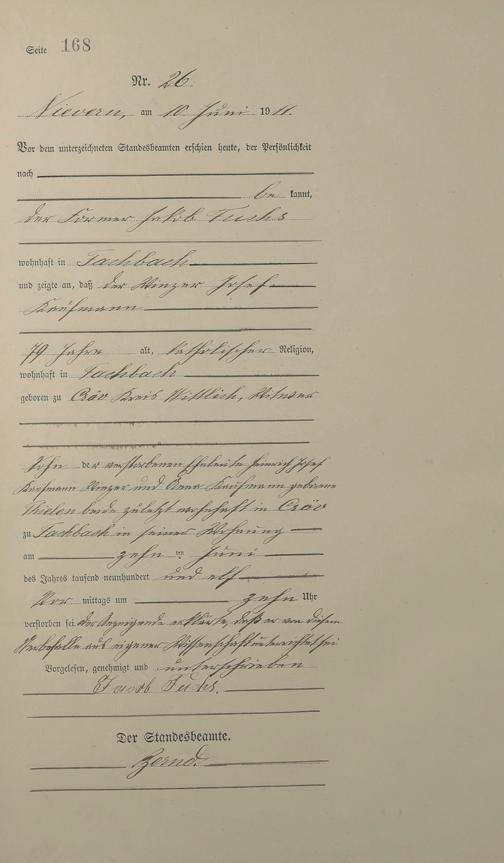 Seite 168
Nr. 26
Nievern, am 10 Juni 1911.
Vor dem unterzeichneten Standesbeamten erschien heute, der Persönlichkeit
nach
be kannt,
der Former Jakob Fuchs
wohnhaft in Fachbach
und zeigte an, daß der Winzer Josef
Kaufmann
79 Jahre alt, katholischer Religion,
wohnhaft in Fachbach
geboren zu Cröv Kreis Wittlich, Witwer
Sohn der verstorbenen Eheleute Heinrich Josef
Kaufmann Winzer und Anna Kaufmann geborene
Thielen beide zuletzt wohnhaft in Cröv
zu Fachbach in seiner Wohnung
am zehn ten Juni
des Jahres tausend neunhundert und elf
Vor mittags um zehn Uhr
verstorben sei der Anzeigende erklärte, daß er von diesem
Sterbefalle aus eigener Wissenschaft unterrichtet sei
Vorgelesen, genehmigt und unterschrieben
Jacob Fuchs.
Der Standesbeamte.